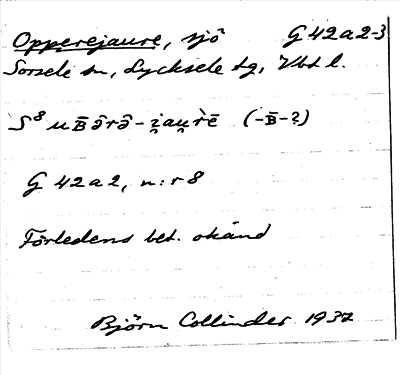 Opperejaure, sjö G 42 a 2-3
Sorsele sn, Lycksele tg, Vbt l.
S⁸ uʙ̄ə̂rə̂-i̯au̯rḕ (-ʙ̄-?)
G 42 a 2, n:r 8
Förledens bet. okänd
Björn Collinder 1937